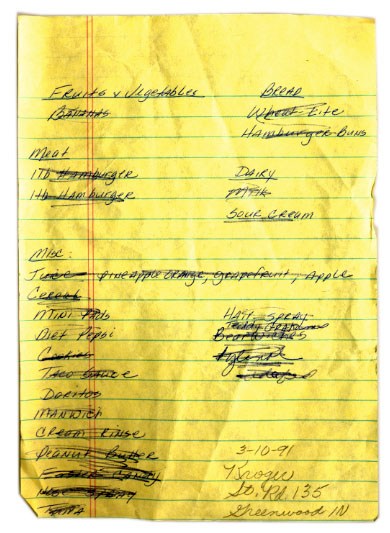 Fruits & Vegetables
Bananas
Bread
Wheat Lite
Hamburger Buns
Meat
1 lb Hamburger
1 lb Hamburger
Dairy
Milk
Sour Cream
Misc:
Juice pineapple orange, grapefruit, apple
Cereal
Mini Pads
Diet Pepsi
Cookies
Taco Sauce
Doritos
Manwich
Cream Rinse
Peanut Butter
Easter Candy
Nose Spray
Hair Spray
Teddy Grahams
3-10-91
Kroger
St. Rd. 135
Greenwood IN